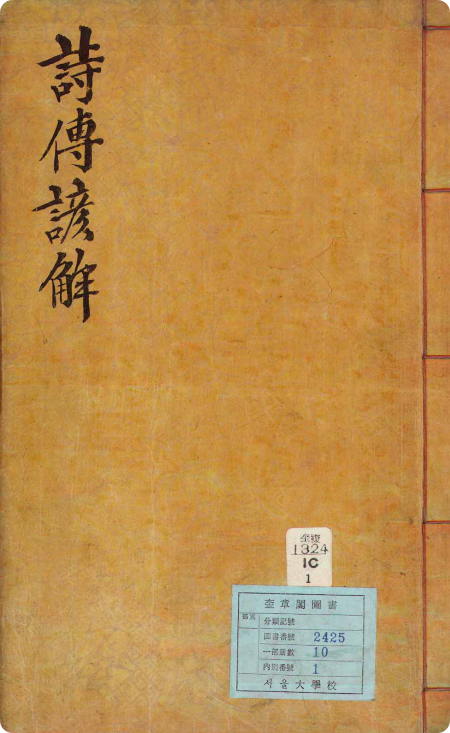 詩傳諺解
奎複
1324
1C
1
奎章閣圖書
分類記號
圖書番號 2425
一部冊數 10
內別番號 1
서울大學校